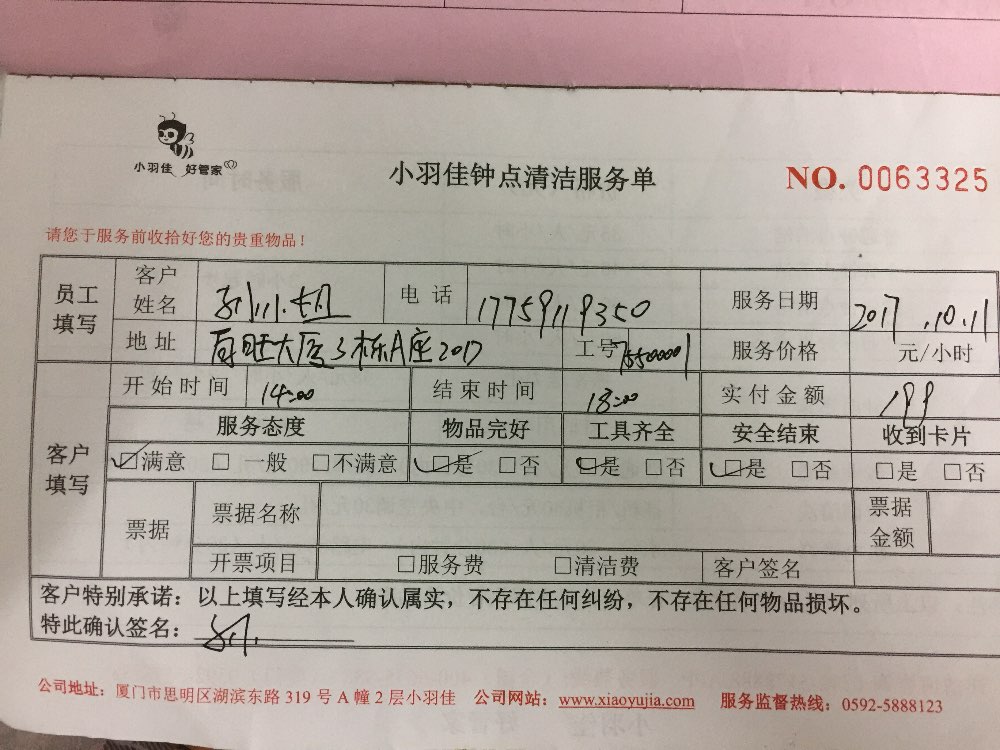 小羽佳 好管家
小羽佳钟点清洁服务单
NO. 0063325
请您于服务前收拾好您的贵重物品！
员工填写 客户姓名 电 话 17759119350 服务日期 2017.10.11
地 址 大厦3栋A座2017 工号 服务价格 元/小时
客户填写 开始时间 14:00 结束时间 18:00 实付金额 199
服务态度 物品完好 工具齐全 安全结束 收到卡片
☑满意 □一般 □不满意 ☑是 □否 ☑是 □否 ☑是 □否 □是 □否
票据 票据名称 票据金额
开票项目 □服务费 □清洁费 客户签名
客户特别承诺：以上填写经本人确认属实，不存在任何纠纷，不存在任何物品损坏。
特此确认签名：
公司地址：厦门市思明区湖滨东路 319 号 A 幢 2 层小羽佳 公司网站：www.xiaoyujia.com 服务监督热线：0592-5888123